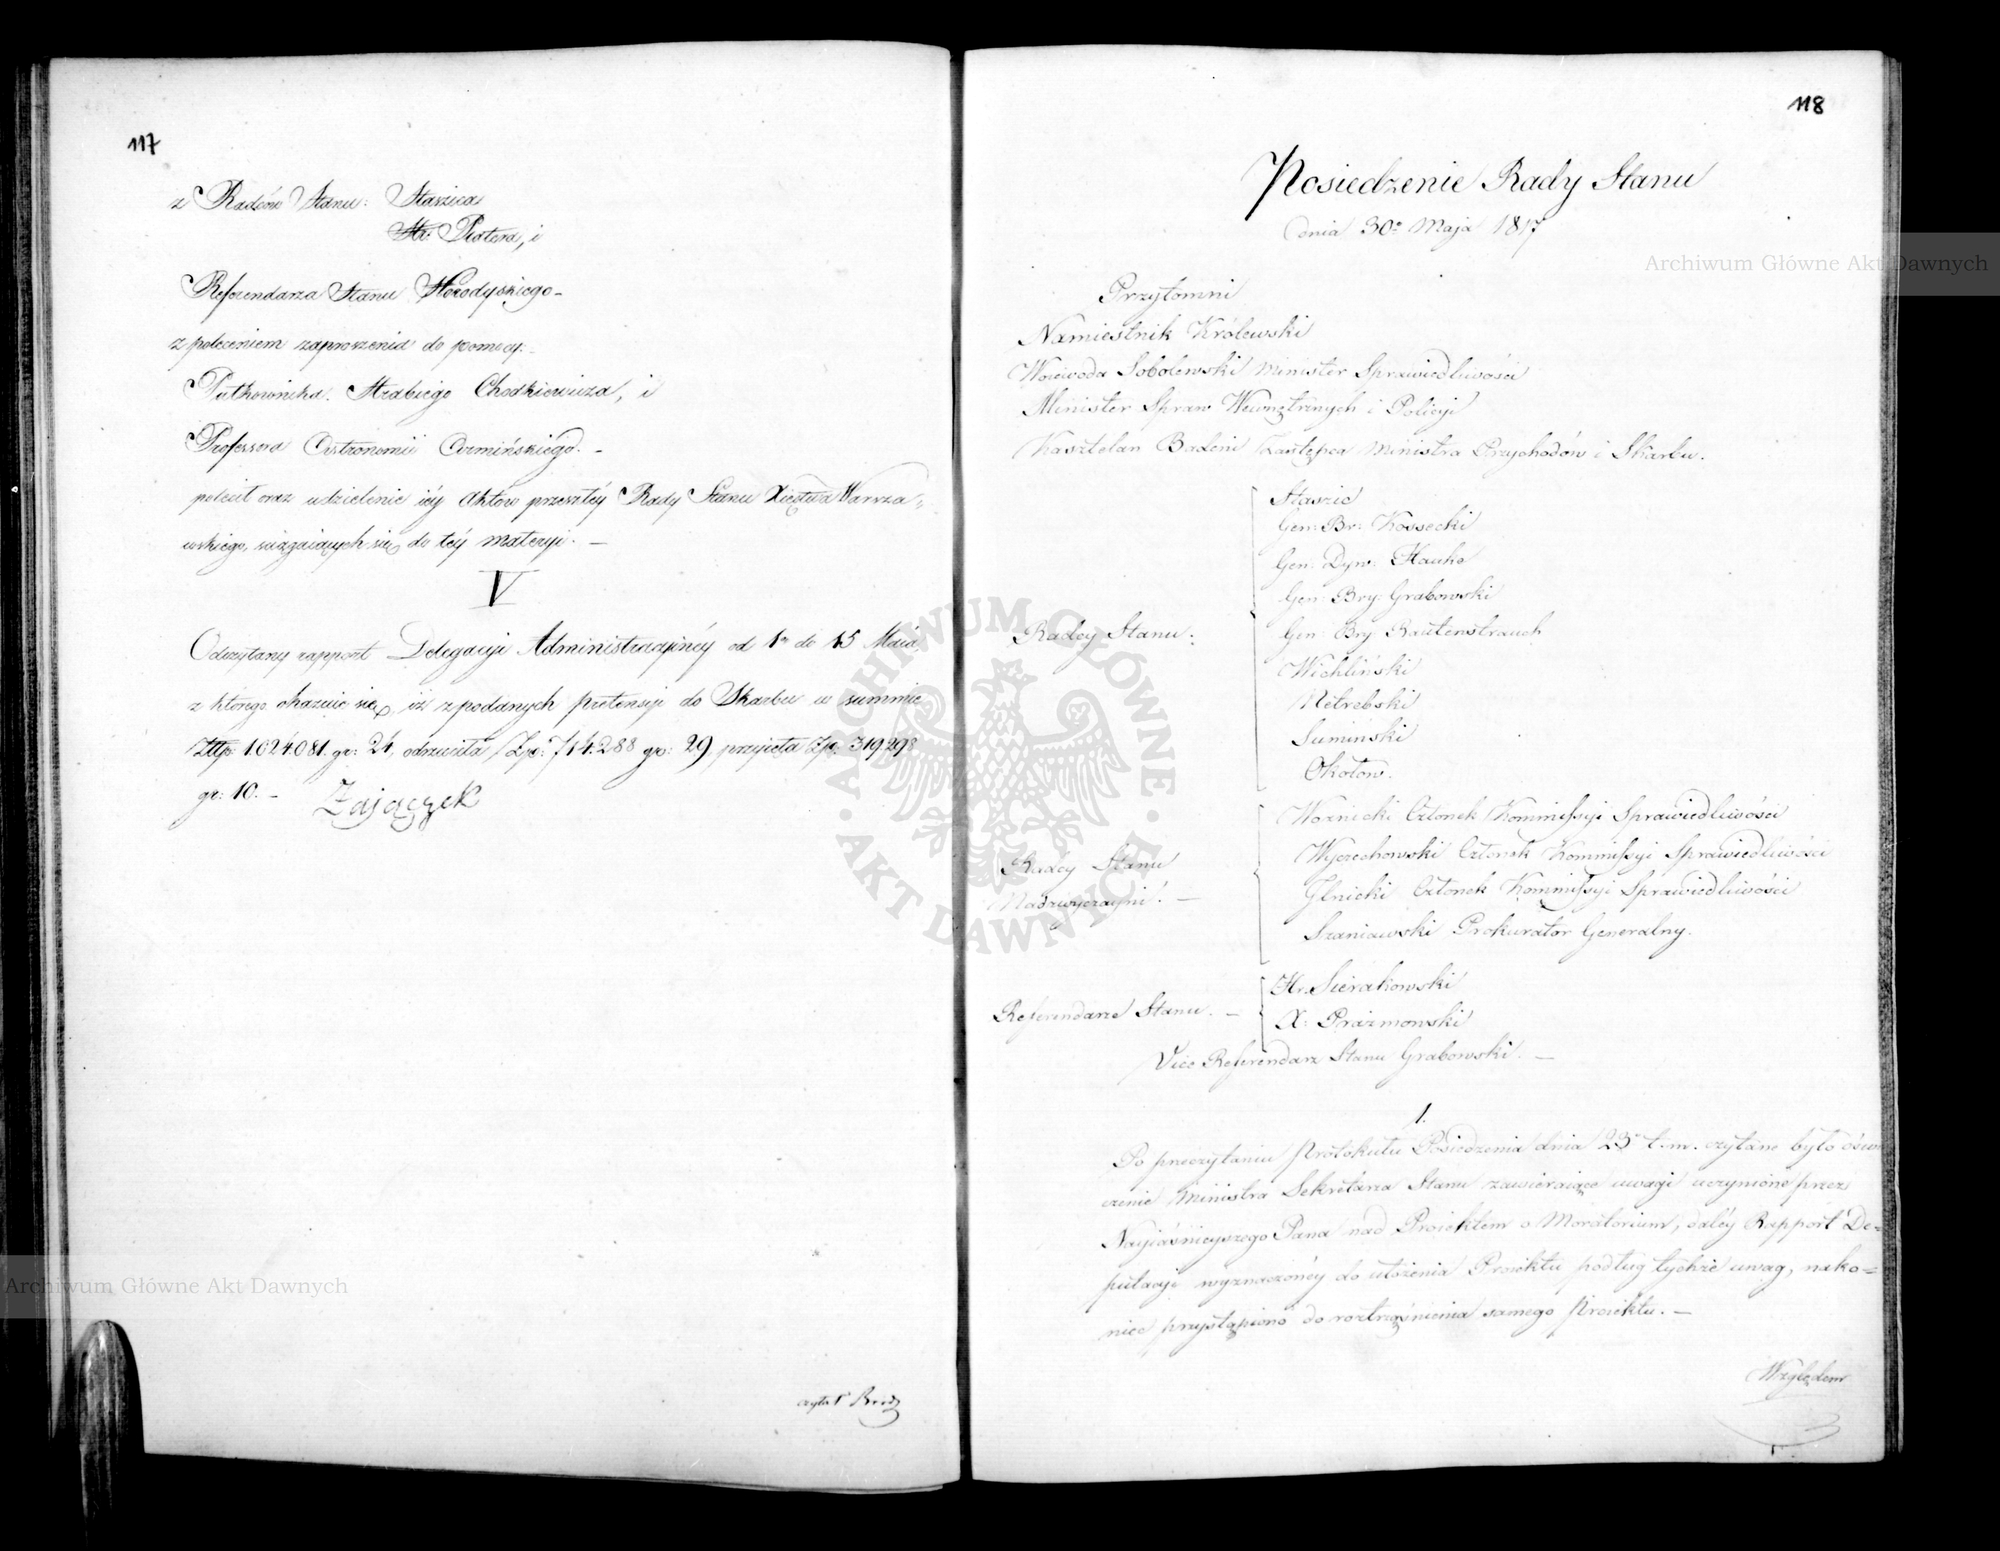 117
z Radców Stanu: Staszica
Hr: Platera, i
Referendarza Stanu Horodyskiego -
z poleceniem zaproszenia do pomocy.
Pułkownika Hrabiego Chodkiewicza, i
Professora Astronomii Armińskiego. -
polecił oraz udzielenie iéy Aktów przeszłéy Rady Stanu Xięstwa Warsza-
wskiego, ściągaiących się do téy materyi. -
V
Odczytany rapport Delegacyi Administracyinéy od 1go do 15 Maia,
z którego okazuie się, iż z podanych pretensyi do Skarbu w summie
Złtp: 1024.081. gr: 24, odrzuciła Zp: 714.288 gr: 29, przyięła Zp: 319.298
gr: 10. -
Zajączek
czytał Brodz
118
Posiedzenie Rady Stanu
dnia 30o Maja 1817
Przytomni
Namiestnik Królewski
Woiewoda Sobolewski Minister Sprawiedliwości
Minister Spraw Wewnętrznych i Policyi
Kasztelan Badeni Zastępca Ministra Przychodów i Skarbu.
Radcy Stanu:
Staszic
Gen: Br: Kossecki
Gen: Dyw: Hauke
Gen: Bry: Grabowski
Gen: Bry: Rautenstrauch
Wichliński
Netrebski
Sumiński
Okołow.
Radcy Stanu
Nadzwyczayni: -
Woźnicki Członek Kommissyi Sprawiedliwości
Wyczechowski Członek Kommissyi Sprawiedliwości
Glnicki Członek Kommissyi Sprawiedliwości
Szaniawski Prokurator Generalny.
Referendarze Stanu. -
Hr. Sierakowski
X: Prażmowski
Vice Referendarz Stanu Grabowski. -
1.
Po przeczytaniu Protokułu Posiedzenia dnia 23o t. m. czytane było oświad
czenie Ministra Sekretarza Stanu zawieraiące uwagi uczynione przez
Nayiaśnieyszego Pana nad Proiektem o Moratorium, daléy Rapport De-
putacyi wyznaczonéy do ułożenia Proiektu podług tychże uwag, nako=
niec przystąpiono do roztrząśnienia samego Proiektu. -
Względem
Archiwum Główne Akt Dawnych
Archiwum Główne Akt Dawnych
ARCHIWUM GŁÓWNE · AKT DAWNYCH ·